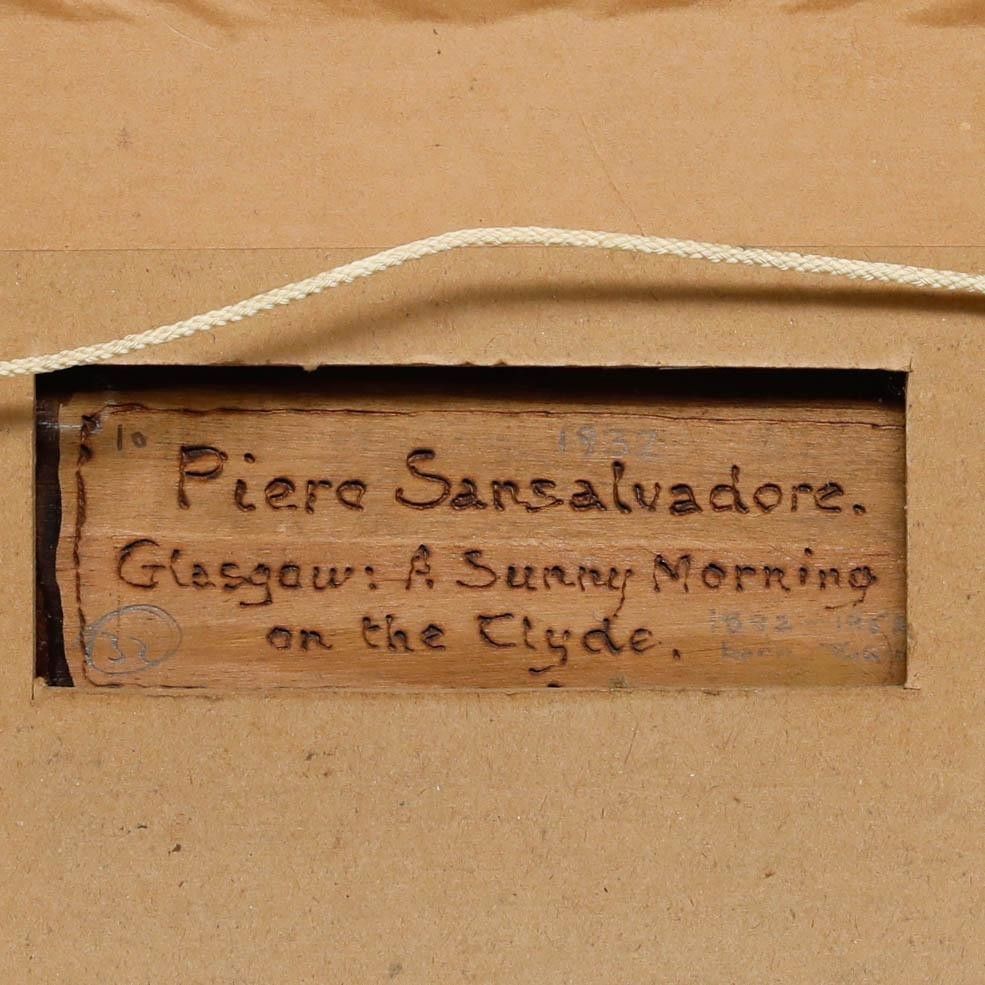 10 1932
Piero Sansalvadore.
Glasgow: A Sunny Morning
on the Clyde.
32
1892
born